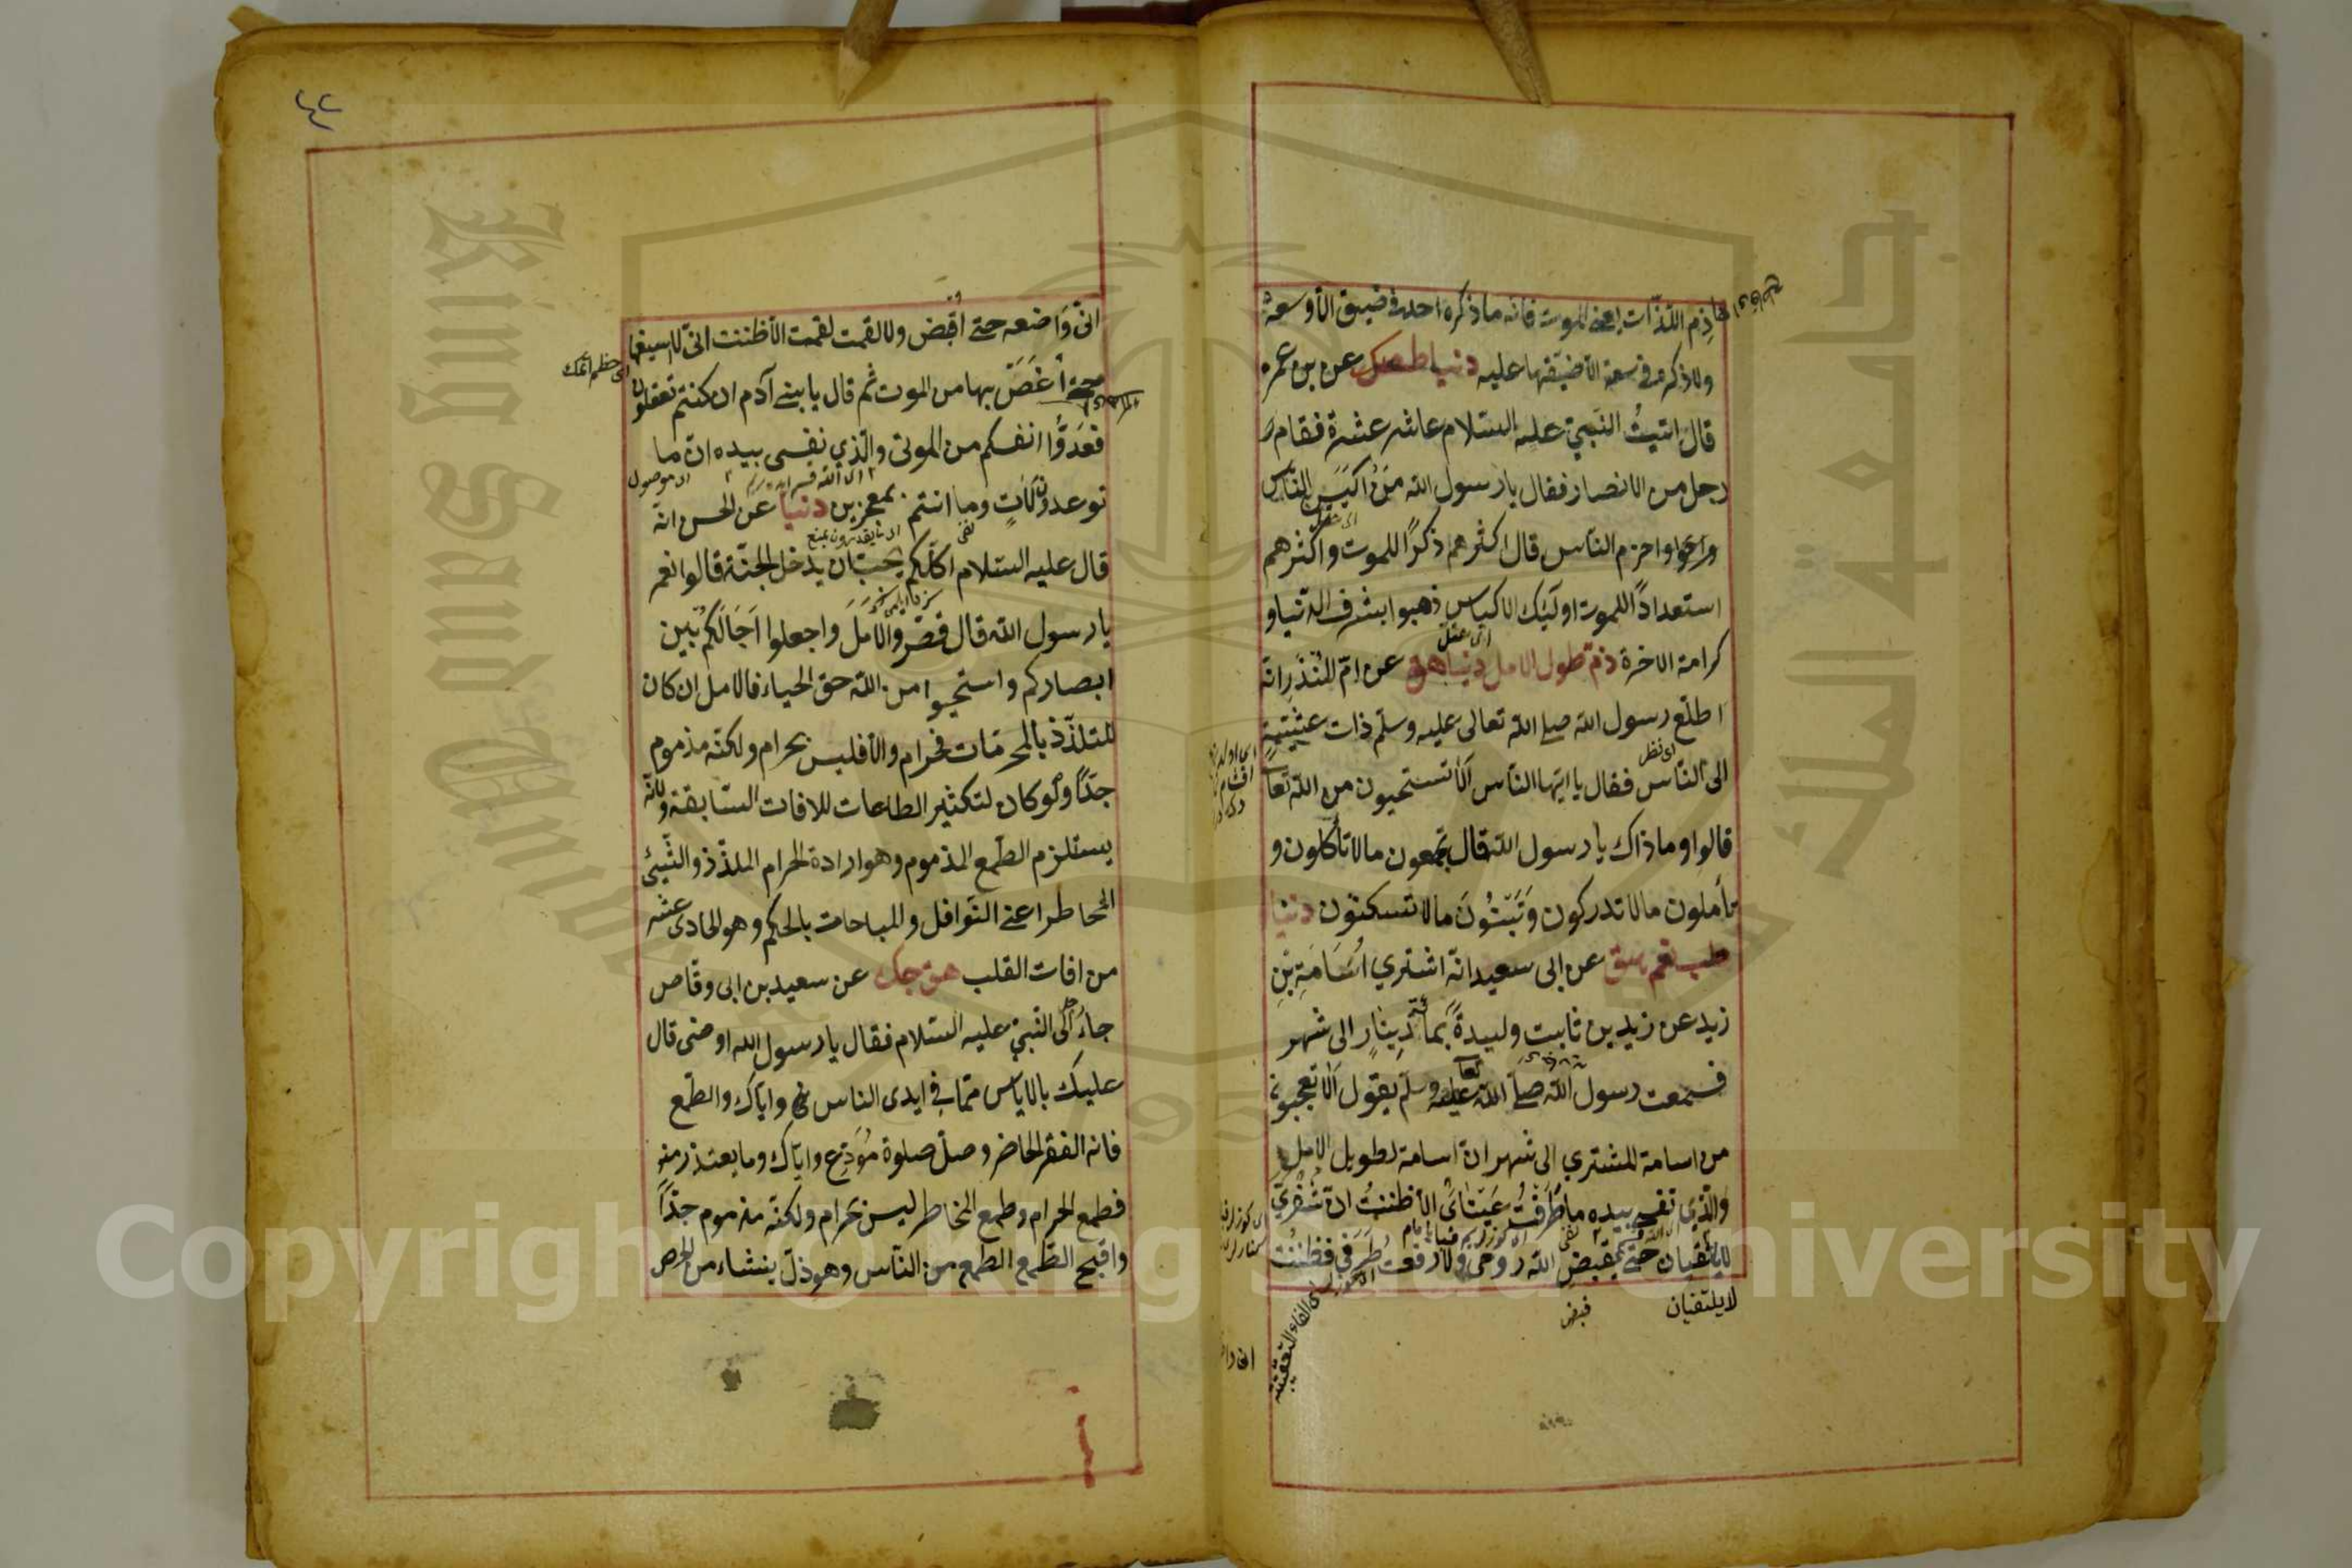 هاذم اللذات يعني الموت فانه ما ذكره احد في ضيق الا وسعه
ولا ذكره في سعة الا ضيقها عليه دنيا طص عن بن عمر
قال اتيت النبي عليه السلام عاشر عشرة فقام
رجل من الانصار فقال يا رسول الله مَنْ اكيس الناس
واحزم الناس قال اكثرهم ذكرًا للموت واكثرهم
استعدادًا للموت اولئك الاكياس ذهبوا بشرف الدنيا و
كرامة الاخرة ذم طول الامل دنيا هق عن ام المنذر انه
اطلع رسول الله صلى الله تعالى عليه وسلم ذات عشية
الى الناس فقال يا ايها الناس الا تستحيون من الله تعا
قالوا وما ذاك يا رسول الله قال تجمعون ما لا تأكلون و
تأملون ما لا تدركون وتبنون ما لا تسكنون دنيا
طب نعم هق عن ابى سعيد انه اشترى اُسَامَةِ بْنِ
زيد عن زيد بن ثابت وليدةً بمائة دينار الى شهر
فسمعت رسول الله صلى الله عليه وسلم يقول الا تعجبون
من اسامة المشتري الى شهر ان اسامة لطويل الامل
والّذي نفسي بيده ما طَرَفَتْ عَيْنَايَ الا ظننتُ ان شفري
لا يلتقيان حتى يقبض الله روحى ولا رفعت طرفي فظننت
لا يلتقيان
قبض
انى واضعه حتى اُقبض ولا لقمت لقمة الا ظننت انى لا اسيغها
حتى أَغَصّ بها من الموت ثم قال يا بنى آدم ان كنتم تعقلون
فعدّوا انفسكم من الموتى والّذي نفسى بيده ان ما
توعدون لآتٍ وما انتم بمعجزين دنيا عن الحسن انه
قال عليه السلام اكلكم يحب ان يدخل الجنة قالوا نعم
يا رسول الله قال قصّروا الامل واجعلوا آجالكم بين
ابصاركم واستحيوا من الله حق الحياء فالامل ان كان
للتلذذ بالمحرمات فحرام والا فليس بحرام ولكنه مذموم
جدًّا ولو كان لتكثير الطاعات للافات السابقة ولانه
يستلزم الطمع المذموم وهو ارادة الحرام الملذذ والشيئ
المخاطر اعني النوافل والمباحات بالحكم وهو الحادى عشر
من افات القلب هق حك عن سعيد بن ابى وقاص
جاء رجل الى النبي عليه السلام فقال يا رسول الله اوصنى قال
عليك بالاياس مما في ايدى الناس واياك والطمع
فانه الفقر الحاضر وصل صلوة مُوَدِّع واياك وما يعتذر منه
فطمع الحرام وطمع المخاطر ليس بحرام ولكنه مذموم جدًّا
واقبح الطمع الطمع من الناس وهو ذل ينشاء من الحرص
Copyright © King Saud University
King Saud University
جامعة الملك